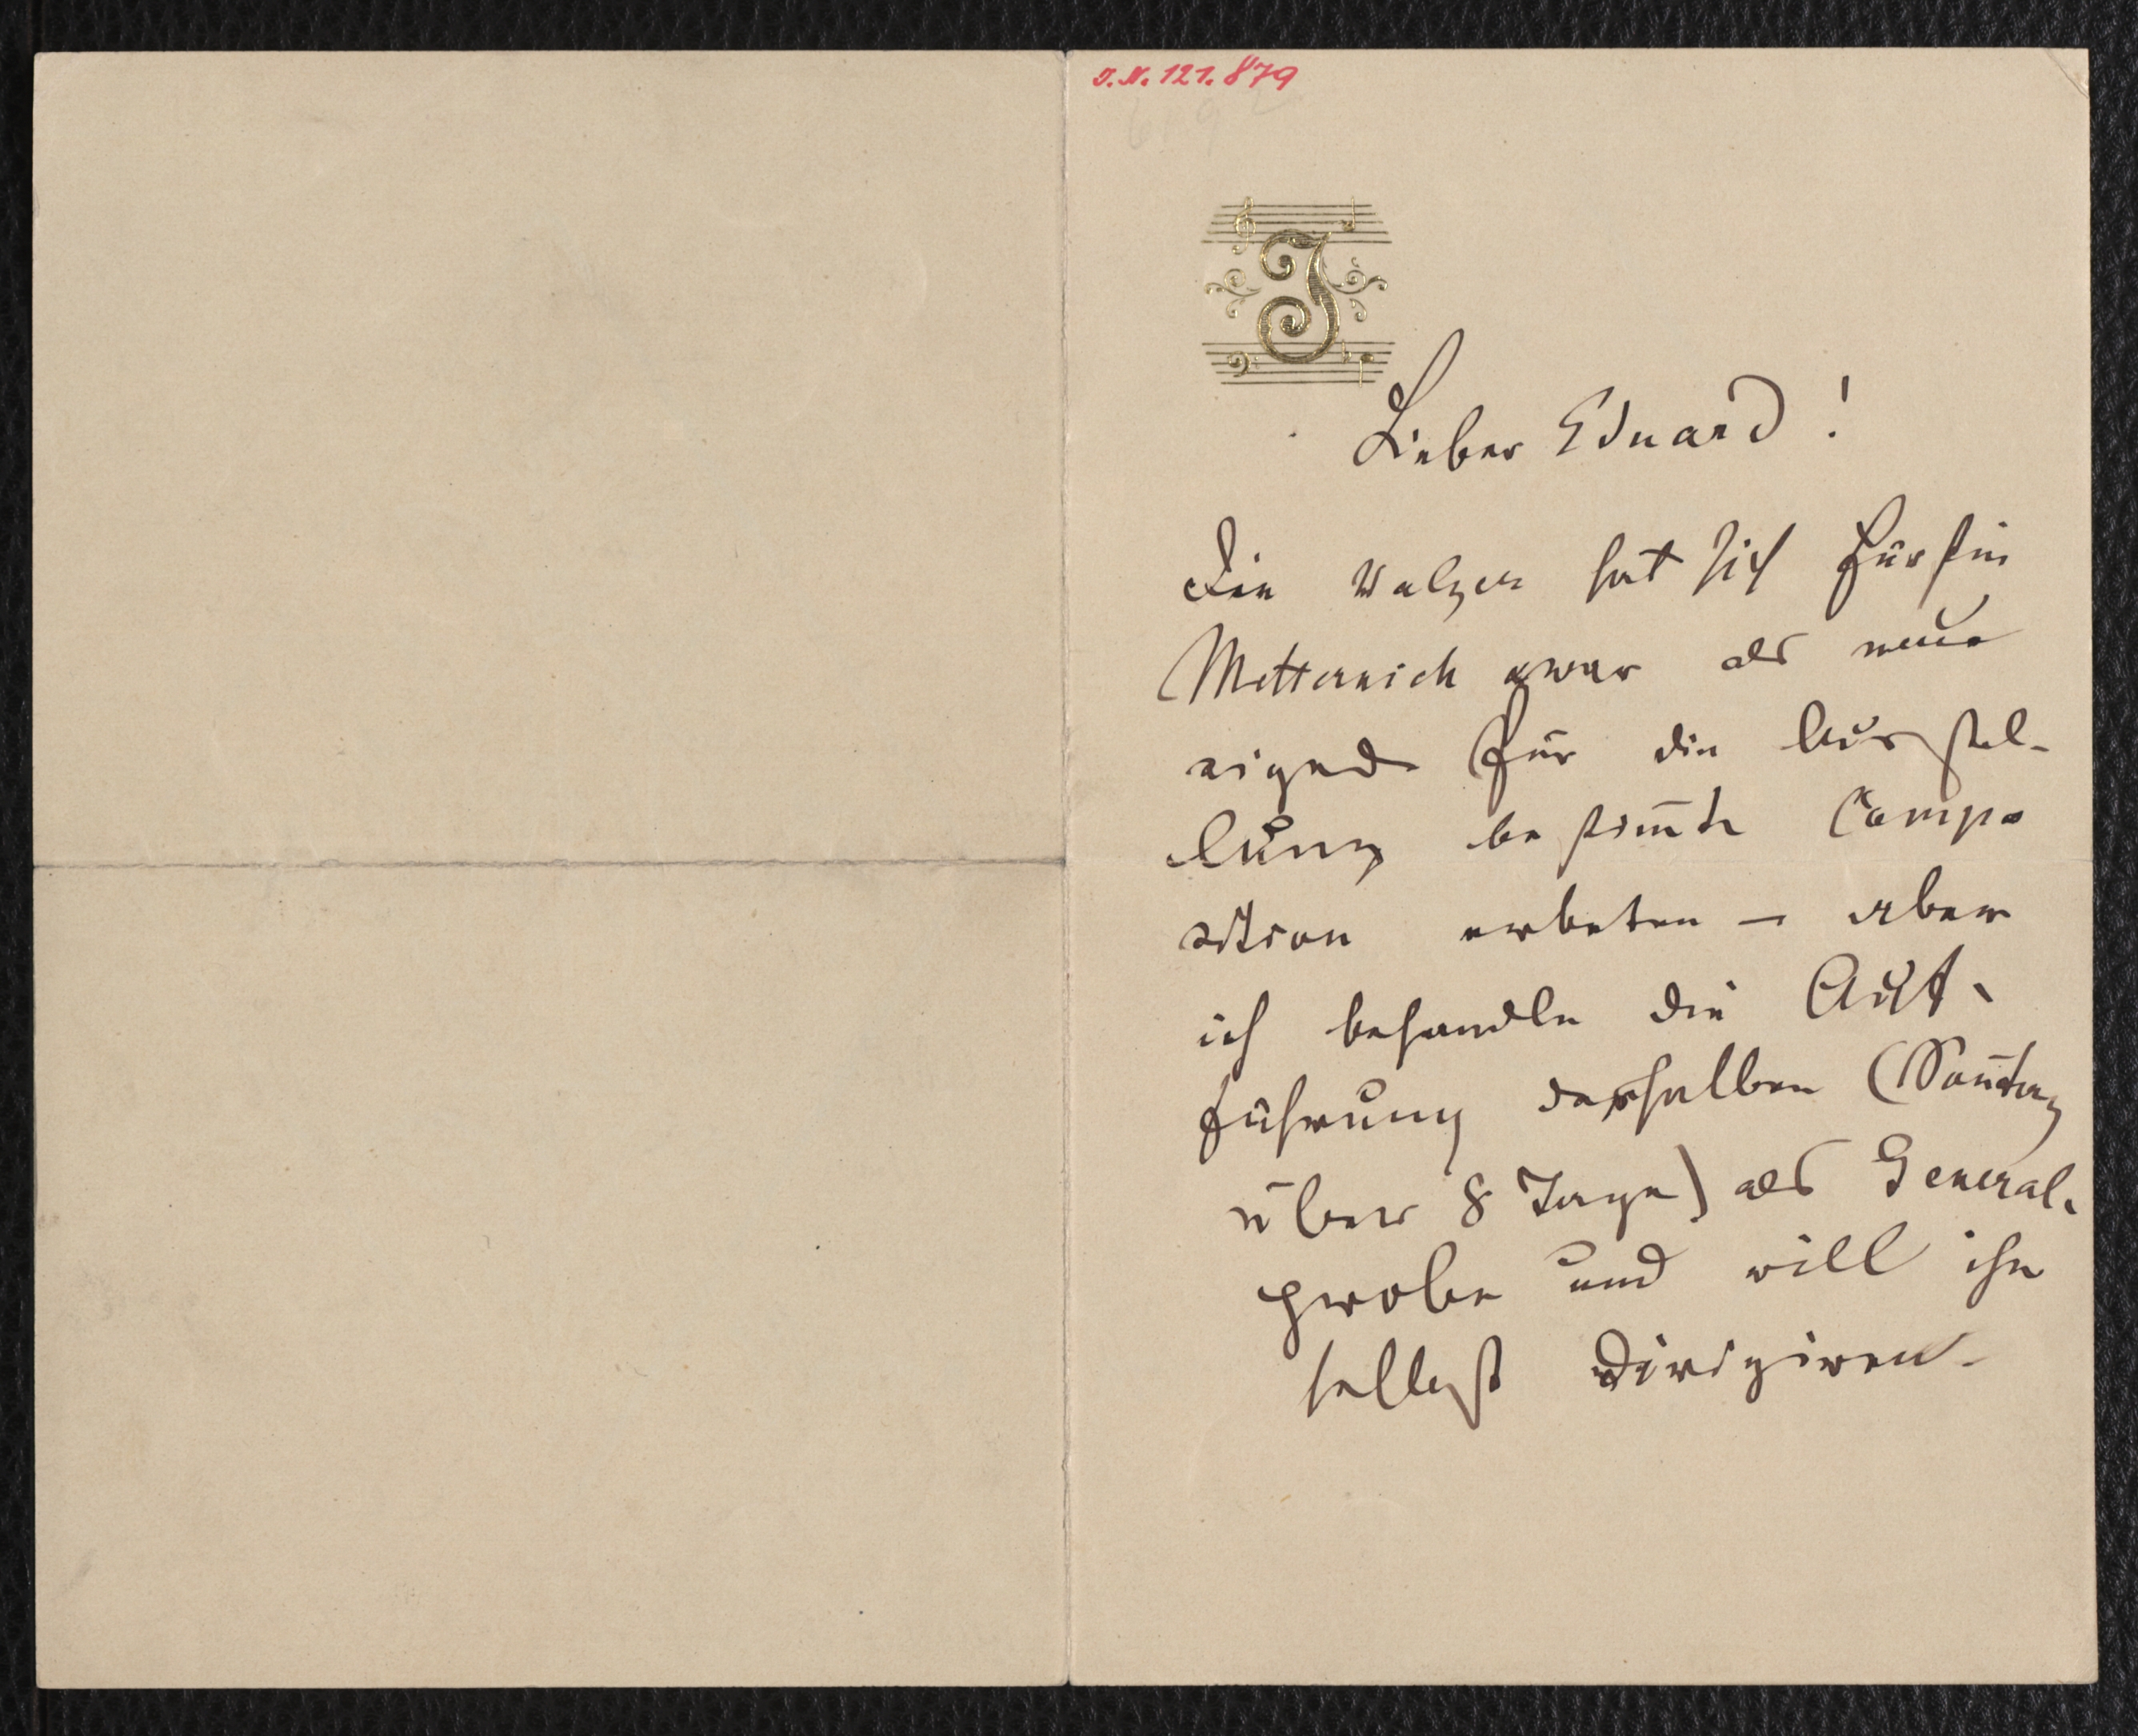 I.N. 121.879
J
Lieber Eduard!
Die Walzer hat sich Fürstin
Metternich zwar als neue
eigends für die Ausstel-
lung bestim̄te Compo
sition erbeten – aber
ich behandle die Auf-
führung desselben (Son̄tag
über 8 Tage) als General-
probe und will ihn
selbst dirigiren.